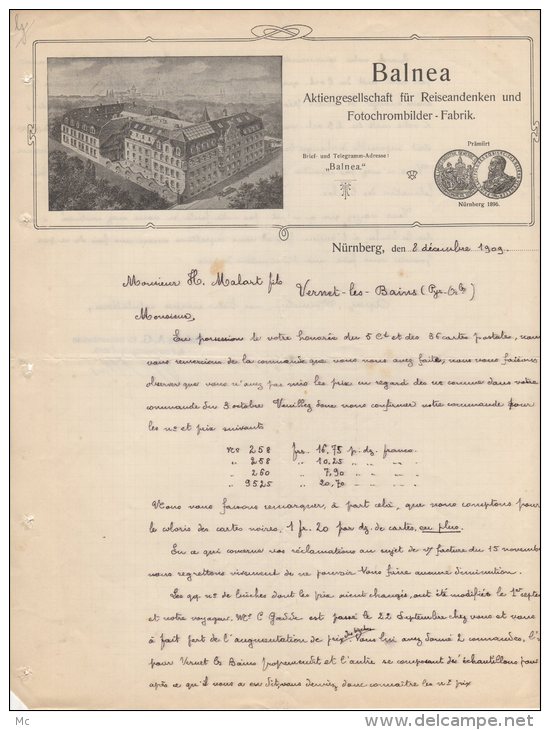 Balnea
Aktiengesellschaft für Reiseandenken und
Fotochrombilder-Fabrik.
Brief- und Telegramm-Adresse:
„Balnea."
Prämiirt
Nürnberg 1896.
Nürnberg, den 8 décembre 1909.
Monsieur H. Malart fils
Vernet-les-Bains (Pyr.-Orles)
Monsieur,
En possession de votre honorée du 5 Ct et des 36 cartes postales, nous
vous remercions de la commande que vous nous avez faite, nous vous faisons
observer que vous n'avez pas mis les prix en regard des nos comme dans votre
commande du 3 octobre. Veuillez donc nous confirmer votre commande pour
les nos et prix suivants
nos 258 frs. 16.75 p. dz. franco.
" 258 " 10.25 " " "
" 260 " 7.90 " " "
" 9525 " 20.70 " " "
Nous vous faisons remarquer, à part cela, que nous comptons pour
le coloris des cartes noires, 1 fr. 20 par dz. de cartes, en plus.
En ce qui concerne vos réclamations au sujet de n/ facture du 15 novembre
nous regrettons vivement de ne pouvoir vous faire aucune diminution.
Les qq. nos de dont les prix aient changés, ont été modifiés le 1er septe
et notre voyageur, Mr C Gadde est passé le 22 Septembre chez vous et vous
a fait part de l'augmentation de prix. Vous lui avez donné 2 commandes, l'
pour Vernet les Bains proprement dit et l'autre se composant d'échantillons pour
après ce qu'il nous a dit, vous deviez donc connaître les nos prix
Mc
delcampe.net